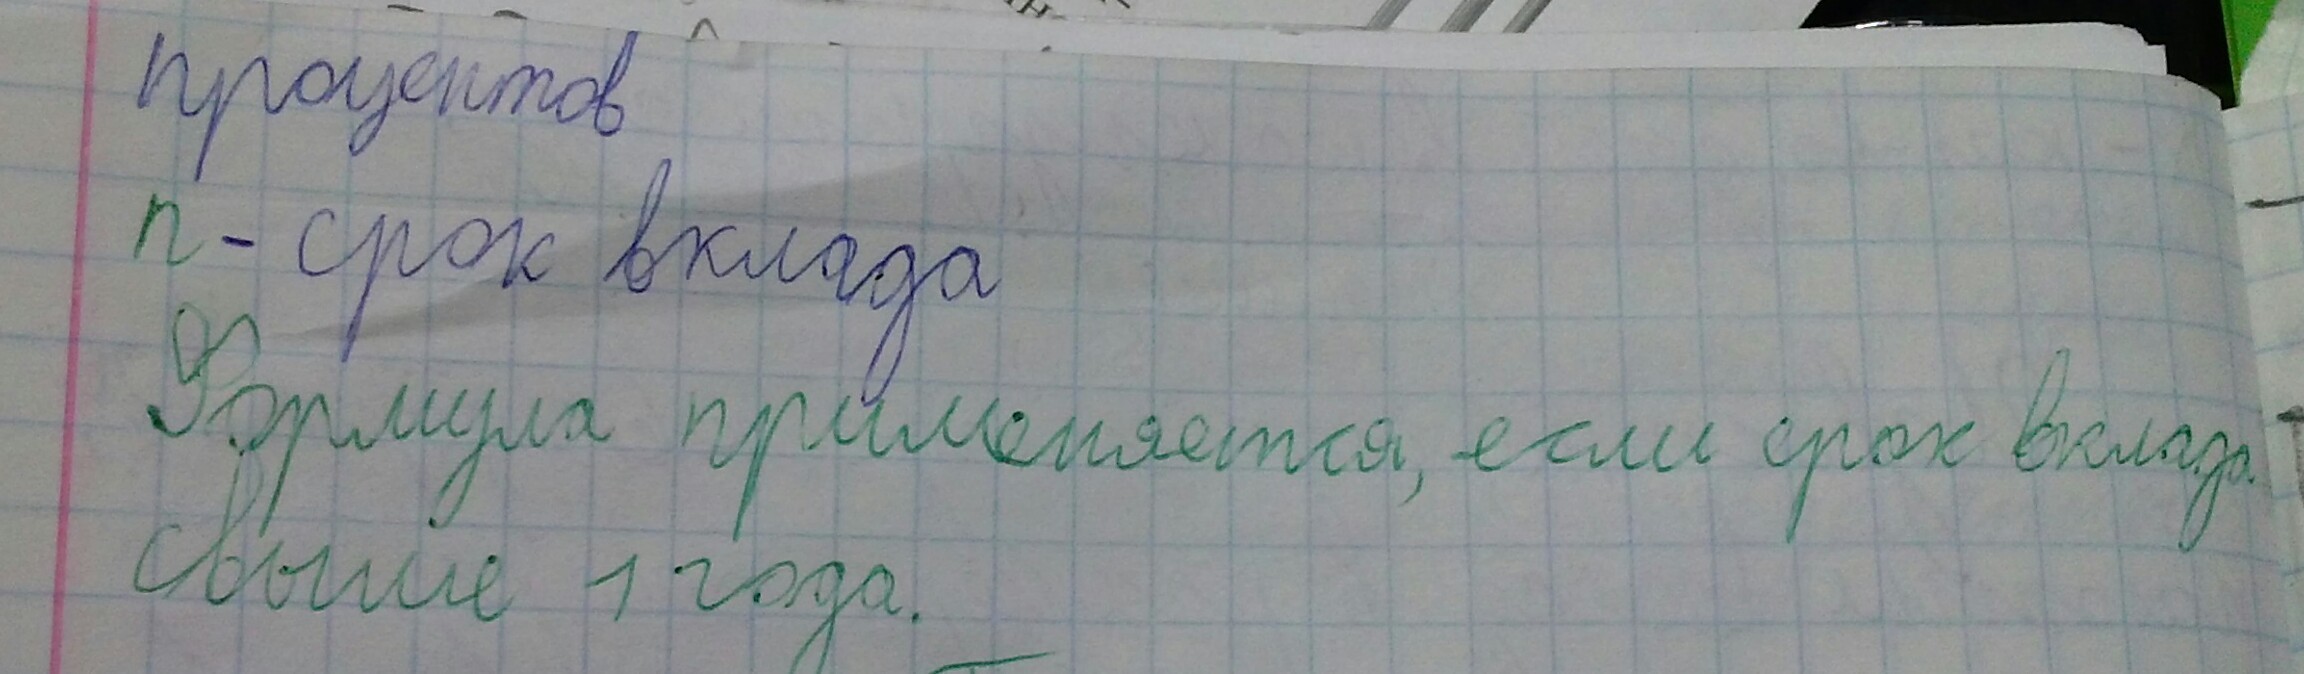 процентов
n - срок вклада
Формула применяется, если срок вклада
свыше 1 года.